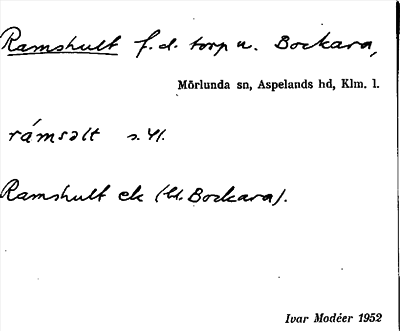 Ramshult f.d. torp u. Bockara,
Mörlunda sn, Aspelands hd, Klm. l.
rámsəlt s. Yl.
Ramshult ek (bl. Bockara).
Ivar Modéer 1952